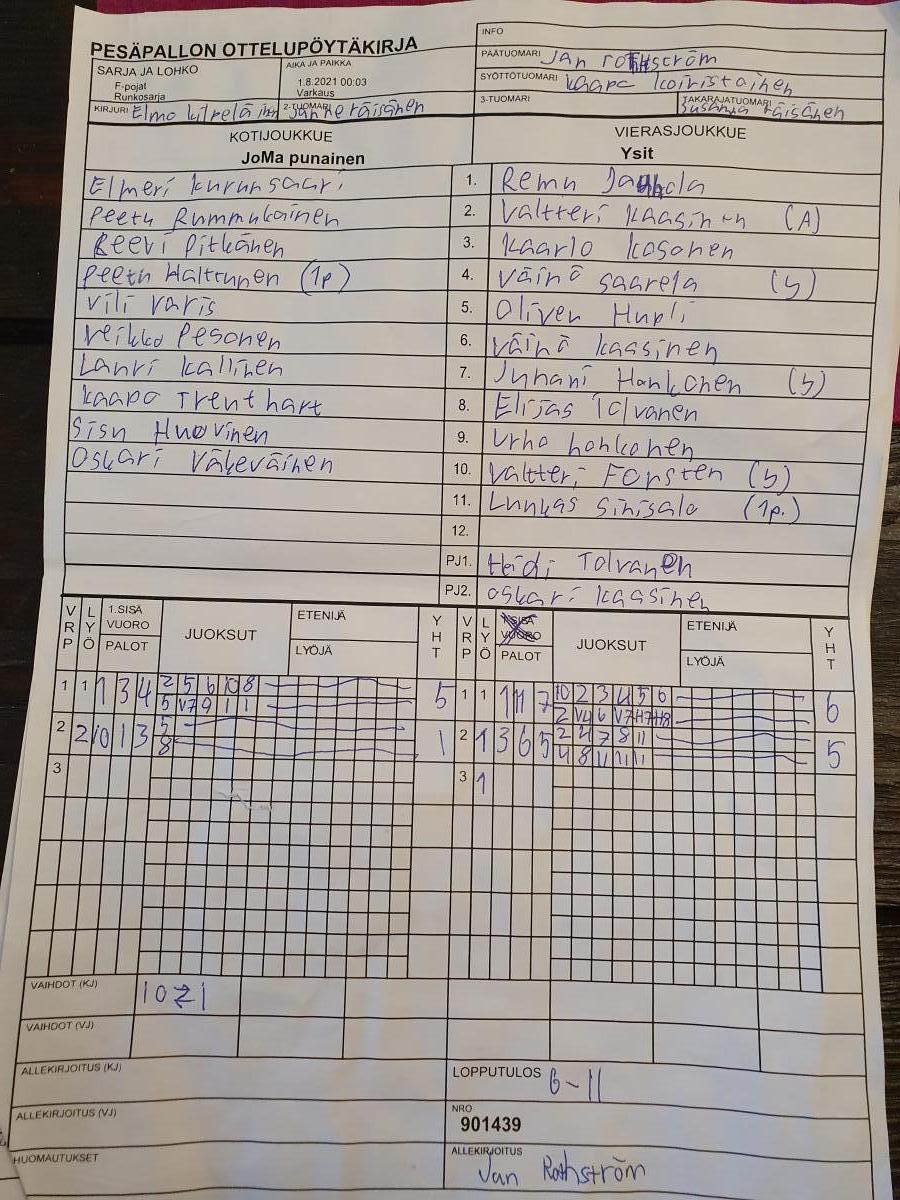 PESÄPALLON OTTELUPÖYTÄKIRJA
INFO
PÄÄTUOMARI Jan Rothström
SARJA JA LOHKO
F-pojat
Runkosarja
AIKA JA PAIKKA
1.8.2021 00:03
Varkaus
SYÖTTÖTUOMARI Kaapo Koiristainen
KIRJURI Elmo
2-TUOMARI Janne Räisänen
3-TUOMARI
TAKARAJATUOMARI Susanna Räisänen
KOTIJOUKKUE
JoMa punainen
VIERASJOUKKUE
Ysit
Elmeri Kurunsaari 1. Remu
Peetu Rummukainen 2. Valtteri Kaasinen (A)
Eeevi Pitkänen 3. Kaarlo Kosonen
Peetu Halttunen (1p) 4. Väinö Saarela (S)
Vili Varis 5. Oliver Hupli
Veikko Pesonen 6. Väinö Kaasinen
Lauri Kallinen 7. Juhani Honkonen (S)
Kaapo Trenthart 8. Elijas Tolvanen
Sisu Huovinen 9. Urho Honkonen
Oskari Väkeväinen 10. Valtteri Forsten (S)
11. Luukas Sinisalo (1p.)
12.
PJ1. Heidi Tolvanen
PJ2. Oskari Kaasinen
VRP LYÖ 1.SISÄ VUORO PALOT JUOKSUT ETENIJÄ LYÖJÄ YHT VRP LYÖ 1.SISÄ VUORO PALOT JUOKSUT ETENIJÄ LYÖJÄ YHT
1 1 1 3 4 2 5 6 10 8 5 1 1 1 11 7 10 2 3 4 5 6 6
5 V7 9 1 1 2 V4 6 V7 H7 H8
2 2 10 1 3 5 1 2 1 3 6 5 2 4 7 8 11 5
8 4 8 11 11 11
3 3 1
VAIHDOT (KJ) 10 Z 1
VAIHDOT (VJ)
ALLEKIRJOITUS (KJ)
LOPPUTULOS 6-11
ALLEKIRJOITUS (VJ)
NRO
901439
HUOMAUTUKSET
ALLEKIRJOITUS
Jan Rothström